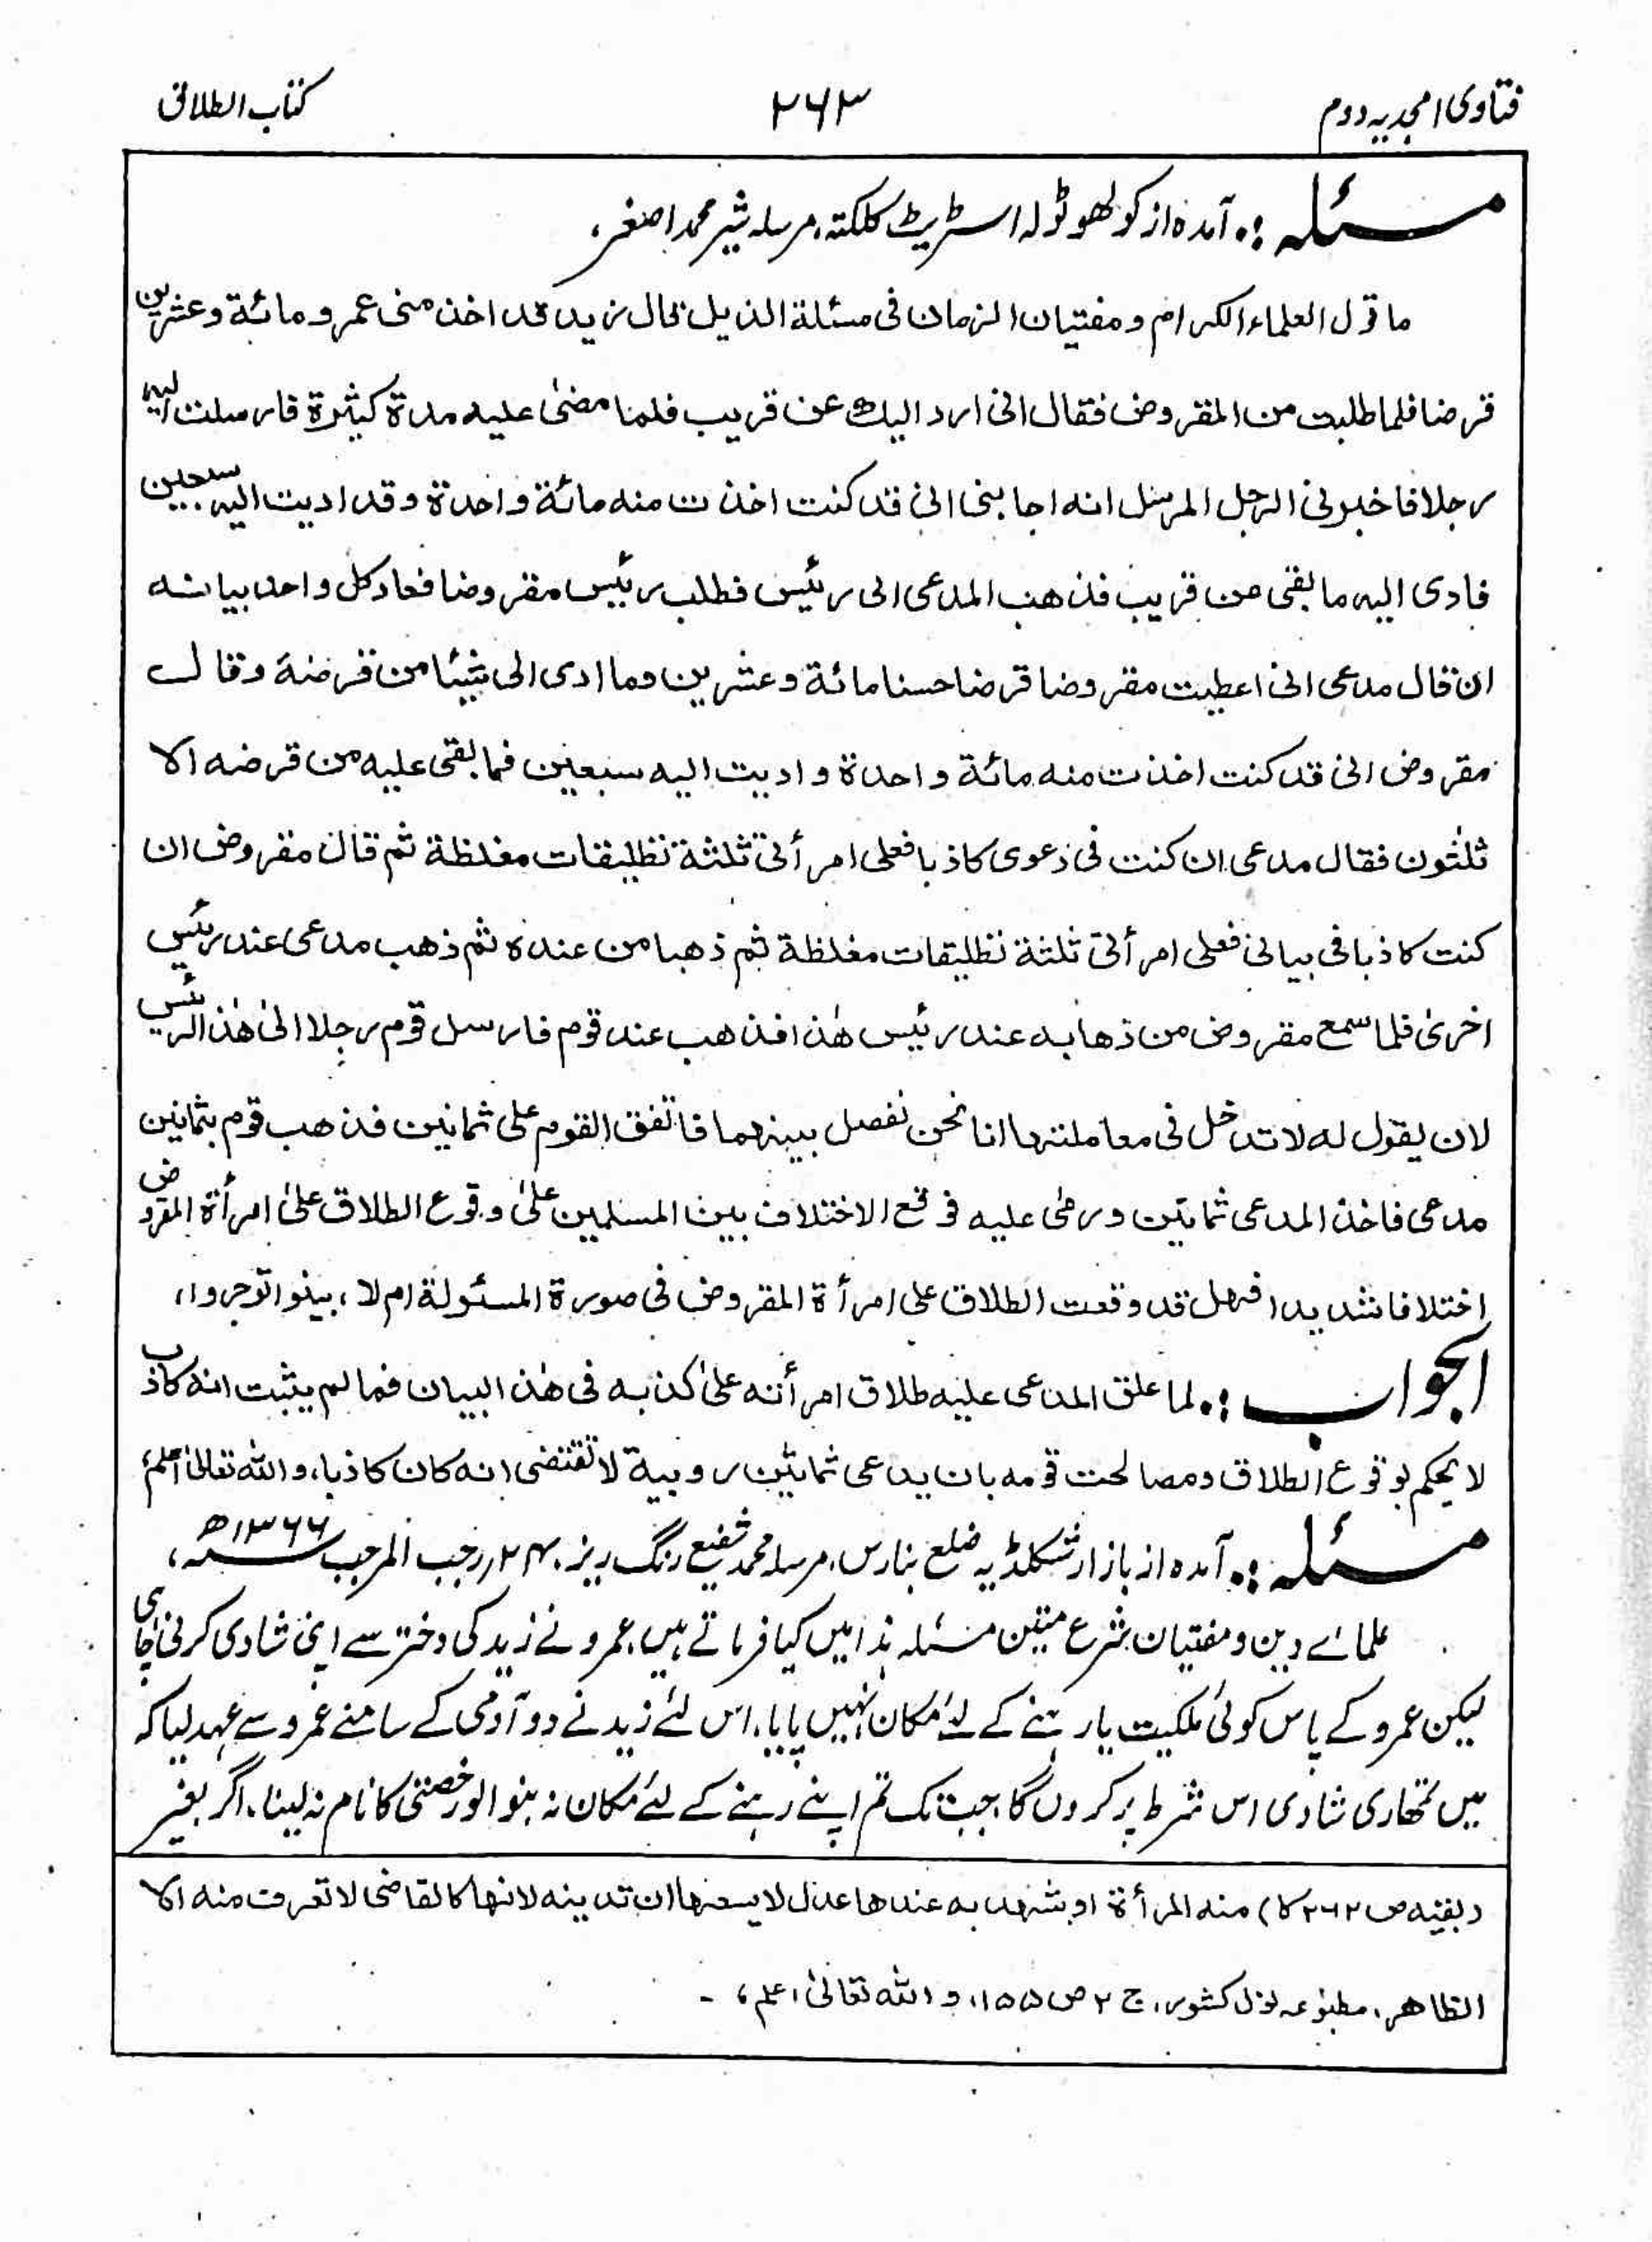 فتاوی امجدیہ دوم ۲۶۳ کتاب الطلاق
مسئلہ :۔ آمدہ از کولھو ٹولہ اسٹریٹ کلکتہ، مرسلہ شیر محمد اصغر،
ما قول العلماء الکرام و مفتیان الزمان فی مسئلة الذیل قال زید قد اخذ منی عمرو مائة و عشرین
قرضا فلما طلبت من المقروض فقال انی ارد الیك عن قریب فلما مضیٰ علیه مدة کثیرة فارسلت الیه
رجلا فاخبرنی الرجل المرسل انه اجابنی انی قد کنت اخذت منه مائة واحدة و قد ادیت الیه سبعین
فادی الیه ما بقی من قریب فذهب المدعی الی رئیس فطلب رئیس مقروضا فعاد کل واحد بیانه
ان قال مدعی انی اعطیت مقروضا قرضا حسنا مائة و عشرین وما ادی الی شیئا من قرضه وقال
مقروض انی قد کنت اخذت منه مائة واحدة و ادیت الیه سبعین فما بقی علیه من قرضه الا
ثلثون فقال مدعی ان کنت فی دعوی کاذبا فعلی امرأتی ثلثة تطلیقات مغلظة ثم قال مقروض ان
کنت کاذبا فی بیانی فعلی امرأتی ثلثة تطلیقات مغلظة ثم ذهبا من عنده ثم ذهب مدعی عند رئیس
اخریٰ فلما سمع مقروض من ذهابه عند رئیس هٰذا فذهب عند قوم فارسل قوم رجلا الیٰ هٰذا الرئیس
لان یقول له لا تدخل فی معاملتها انا نحن نفصل بینهما فاتفق القوم علی ثمانین فذهب قوم بثمانین
مدعی فاخذ المدعی ثمانین و رضی علیه فوقع الاختلاف بین المسلمین علیٰ وقوع الطلاق علیٰ امرأة المقروض
اختلافا شدیدا فهل قد وقعت الطلاق علی امرأة المقروض فی صورة المسئولة ام لا، بینوا توجروا،
الجواب :۔ لما علق المدعی علیه طلاق امرأته علیٰ کذبه فی هٰذا البیان فما لم یثبت انه کاذب
لا یحکم بوقوع الطلاق و مصالحت قومه بان یدعی ثمانین روبیة لا تقتضی انه کان کاذبا، والله تعالیٰ اعلم،
مسئلہ :۔ آمدہ از بازار ضلع بنارس، مرسلہ محمد شفیع رنگ ریز، ۲۴؍ رجب المرجب ۱۳۶۶ھ،
علمائے دین و مفتیان شرع متین مسئلہ ہذا میں کیا فرماتے ہیں، عمرو نے زید کی دختر سے اپنی شادی کرنی چاہی
لیکن عمرو کے پاس کوئی ملکیت یا رہنے کے لئے مکان نہیں پایا، اس لئے زید نے دو آدمی کے سامنے عمرو سے عہد لیا کہ
میں تمھاری شادی اس شرط پر کروں گا، جب تک تم اپنے رہنے کے لئے مکان نہ بنوالو رخصتی کا نام نہ لینا، اگر بغیر
(بقیہ ص ۲۶۲ کا) منه المرأة او شهد به عندها عدل لا یسعها ان تدینه لانها کالقاضی لا تعرف منه الا
الظاهر، مطبوعہ نول کشور، ج ۲ ص ۱۵۵، و الله تعالیٰ اعلم، ۔